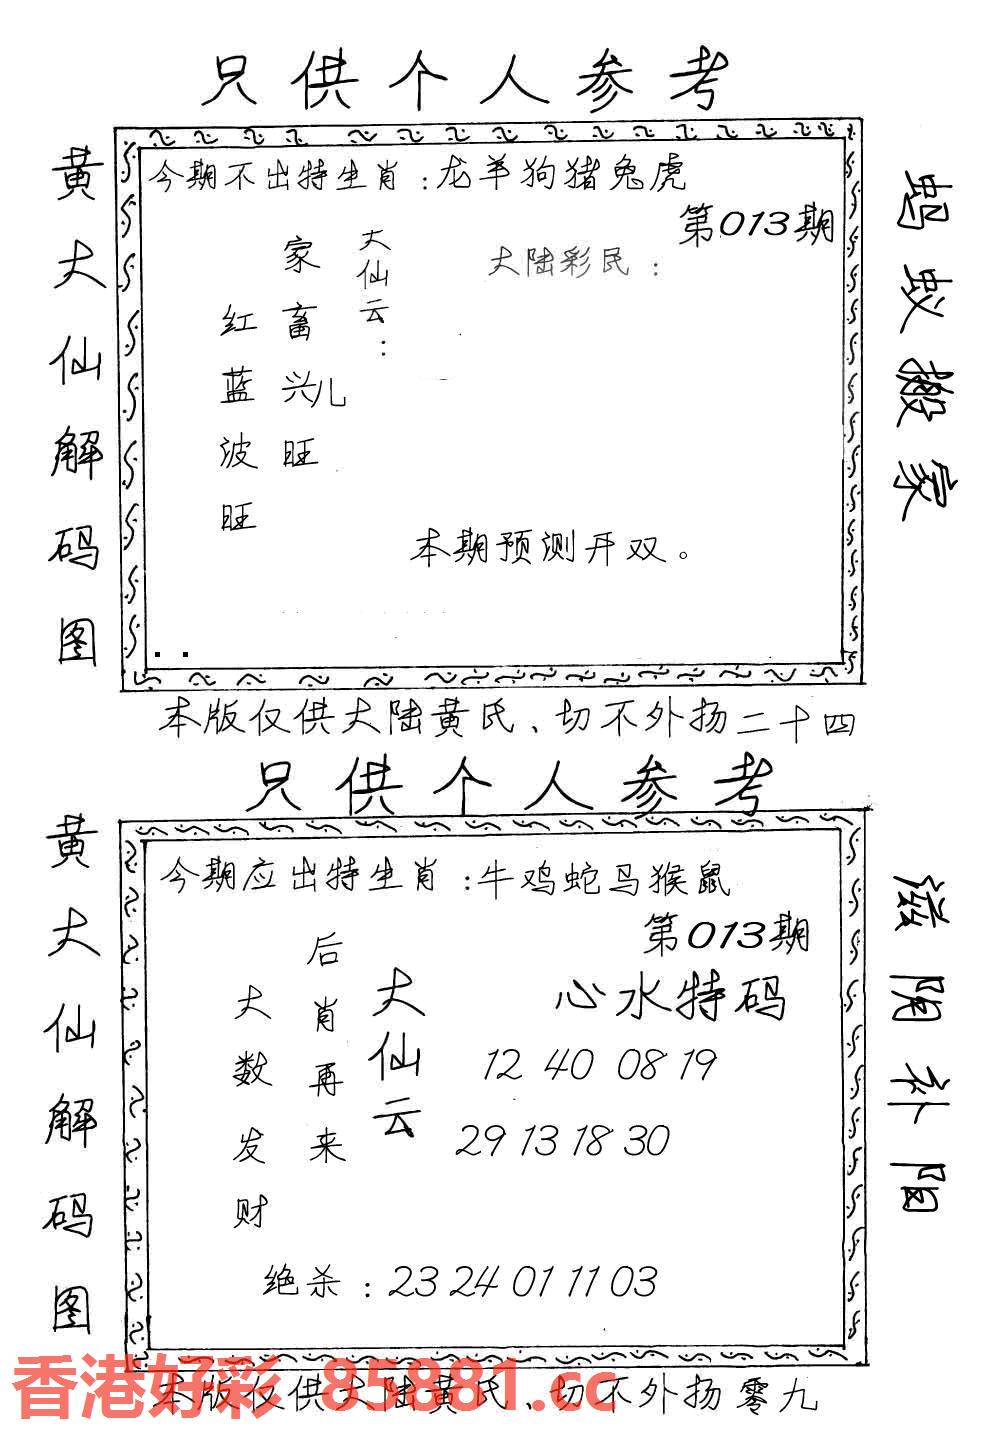 只供个人参考
黄大仙解码图
今期不出特生肖：龙羊狗猪兔虎
第013期
大仙云：
家畜兴儿旺
红蓝波旺
大陆彩民：
本期预测开双。
蚂蚁搬家
本版仅供大陆黄氏、切不外扬二十四
只供个人参考
黄大仙解码图
今期应出特生肖：牛鸡蛇马猴鼠
第013期
大仙云
后肖再来
大数发财
心水特码
12 40 08 19
29 13 18 30
绝杀：23 24 01 11 03
滋阴补阳
香港好彩 85881.cc
本版仅供大陆黄氏、切不外扬零九